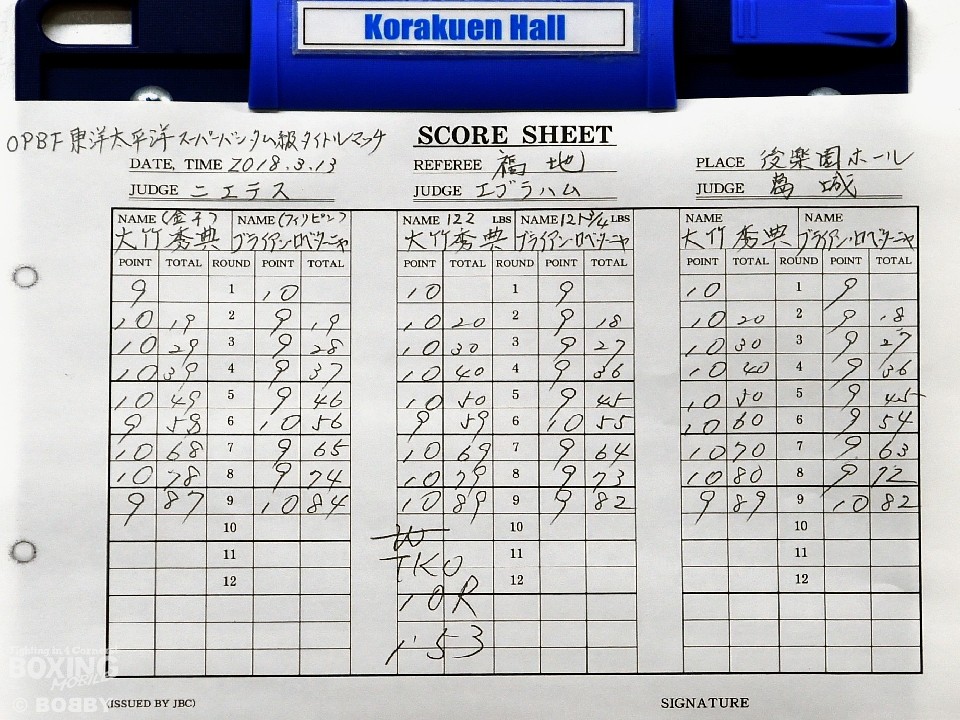 Korakuen Hall
OPBF 東洋太平洋スーパーバンタム級タイトルマッチ SCORE SHEET
DATE, TIME 2018.3.13 REFEREE 福地 PLACE 後楽園ホール
JUDGE ニエテス JUDGE エドラハム JUDGE 葛城
NAME (金子) NAME (フィリピン) NAME 122 LBS NAME 121 3/4 LBS NAME NAME
大竹秀典 ブライアン・ロベターニャ 大竹秀典 ブライアン・ロベターニャ 大竹秀典 ブライアン・ロベターニャ
POINT TOTAL ROUND POINT TOTAL POINT TOTAL ROUND POINT TOTAL POINT TOTAL ROUND POINT TOTAL
9 1 10 10 1 9 10 1 9
10 19 2 9 19 10 20 2 9 18 10 20 2 9 18
10 29 3 9 28 10 30 3 9 27 10 30 3 9 27
10 39 4 9 37 10 40 4 9 36 10 40 4 9 36
10 49 5 9 46 10 50 5 9 45 10 50 5 9 45
9 58 6 10 56 9 59 6 10 55 10 60 6 9 54
10 68 7 9 65 10 69 7 9 64 10 70 7 9 63
10 78 8 9 74 10 79 8 9 73 10 80 8 9 72
9 87 9 10 84 10 89 9 9 82 9 89 9 10 82
10 W 10 10
11 TKO 11 11
12 12 12
10R
1'53
Fighting in a Corner!
BOXING
MOBILE
© BOBBY
(ISSUED BY JBC) SIGNATURE